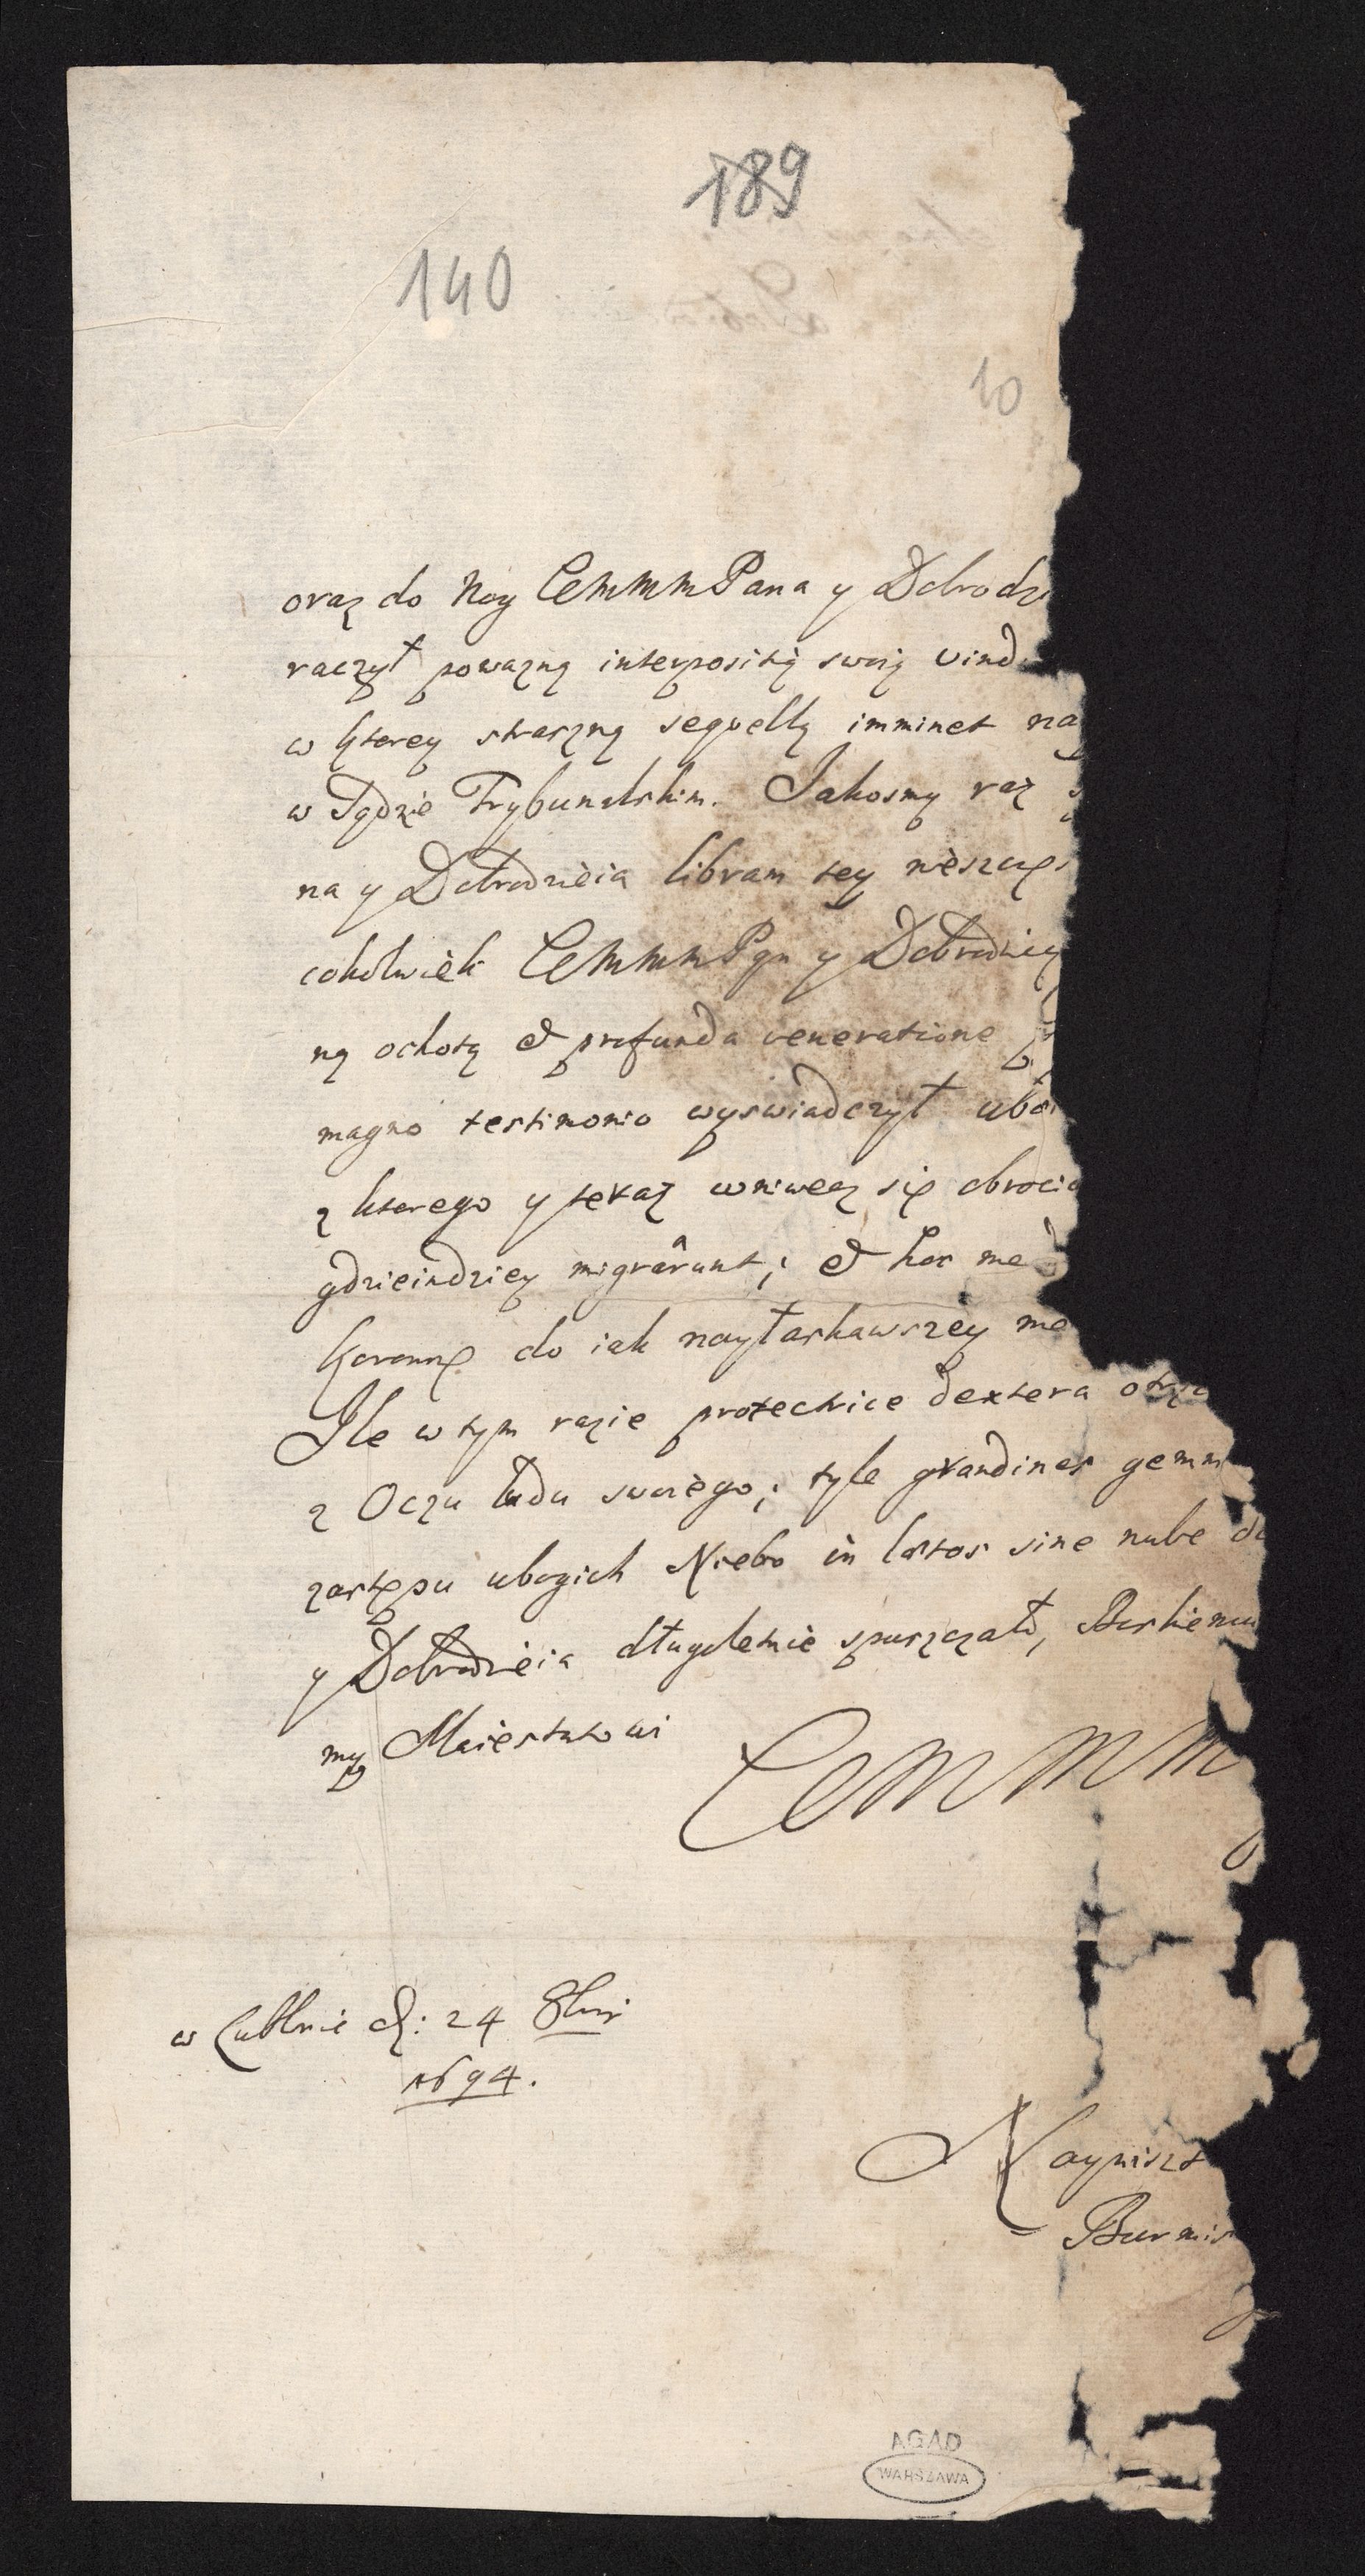 189
140
10
oraz do Nog CEMMMPana y Dobrodzi
raczył powazną interpositią swoią vind
w ktorey straszną seqvellą imminet na
w Sądzie Trybunalskim. Jakosmy raz
na y Dobrodzieia libram tey niesczęs
cokolwiek CEMMMPan y Dobrodziey
ną ochotą et profunda veneratione
magno testimonio wyswiadczył ubo
z ktorego y teraz wniwecz się obroci
gdzieindziey migrarunt; et hoc me
Koronnę do iak nayłaskawszey me
Ile w tym razie protectrice dextera otrze
z Oczu ludu swoiego; tyle grandines gemm
zastępu ubogich Niebo in lætos sine nube d
y Dobrodzieia długoletnie spuszczało, Boskiemu
my Maiestatowi
CEMMM
w Lublinie d: 24 8bris
1694.
Naynizs
Burmis
AGAD
WARSZAWA